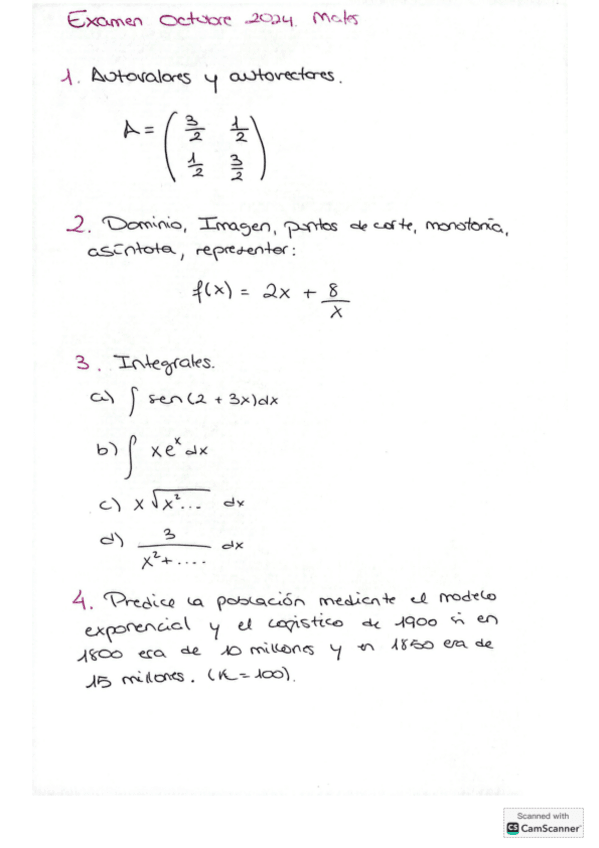 Examen Octubre 2024. Mates
1. Autovalores y autovectores.
A = ( 3/2 1/2
1/2 3/2 )
2. Dominio, Imagen, puntos de corte, monotonía,
asíntota, representar:
f(x) = 2x + 8/x
3. Integrales.
a) ∫ sen(2 + 3x)dx
b) ∫ xeˣ dx
c) x√x²... dx
d) 3/(x²+....) dx
4. Predice la población mediante el modelo
exponencial y el logístico de 1900 si en
1800 era de 10 millones y en 1850 era de
15 millones. (K=100).
Scanned with
CS CamScanner